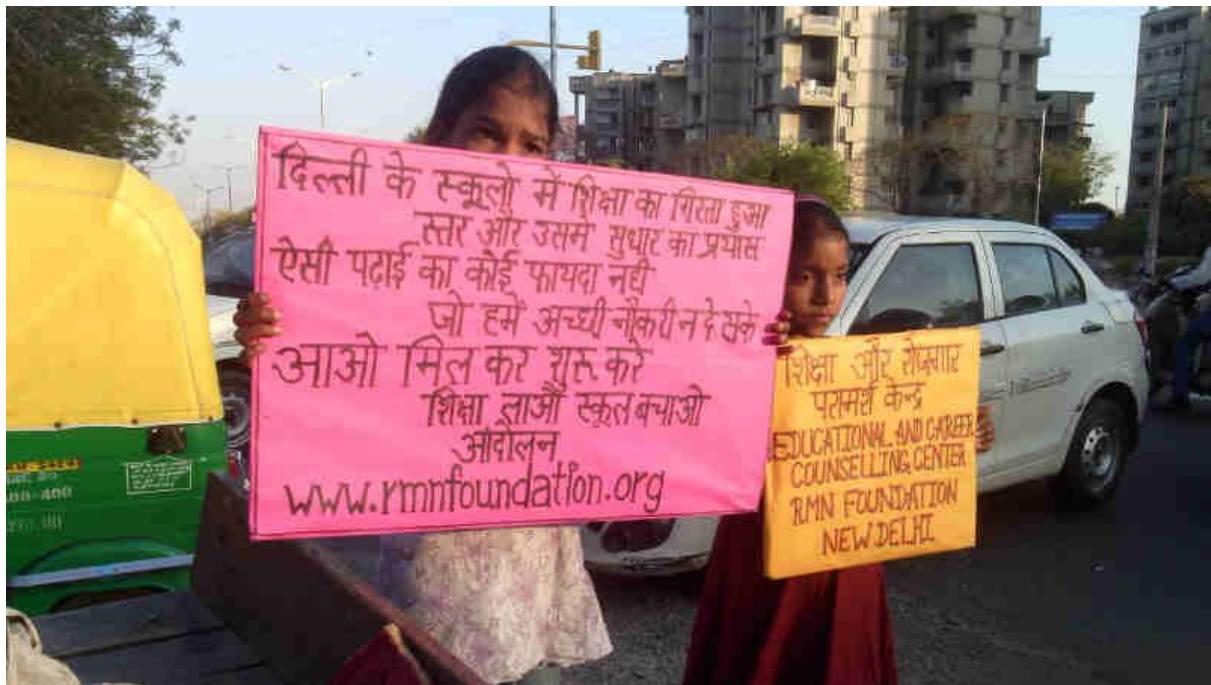 दिल्ली के स्कूलो में शिक्षा का गिरता हुआ
स्तर और उसमे सुधार का प्रयास
ऐसी पढाई का कोई फायदा नही
जो हमे अच्छी नौकरी न दे सके
आओ मिल कर शुरू करे
शिक्षा लाओ स्कूल बचाओ
आंदोलन
www.rmnfoundation.org
शिक्षा और रोजगार
परामर्श केन्द्र
EDUCATIONAL AND CAREER
COUNSELLING CENTER
RMN FOUNDATION
NEW DELHI